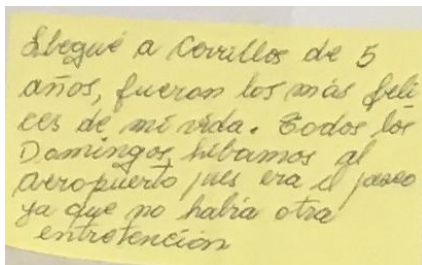 Llegué a Cerrillos de 5
años, fueron los más feli
ces de mi vida. Todos los
Domingos hibamos al
aeropuerto pues era el paseo
ya que no había otra
entretención